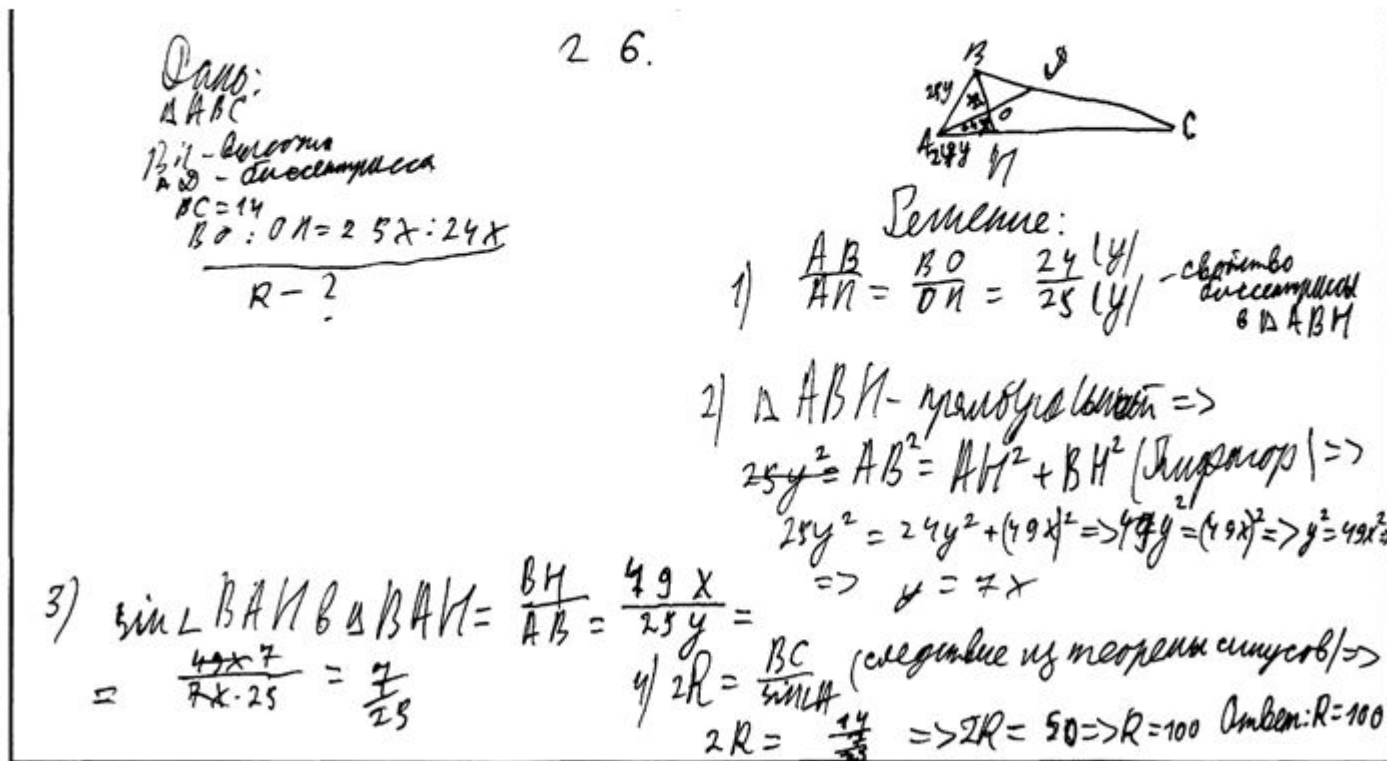 26.
Дано:
△ABC
BH - высота
AD - биссектрисса
BC = 14
BO : OH = 25x : 24x
R - ?
B D
25y
O
A 24y H C
Решение:
1) AB/AH = BO/OH = 24(y)/25(y) - свойство биссектрисы в △ABH
2) △ABH - прямоугольный =>
25y² = AB² = AH² + BH² (Пифагор) =>
25y² = 24y² + (49x)² => 49y² = (49x)² => y² = 49x² =>
=> y = 7x
3) sin∠BAH в △BAH = BH/AB = 49x/25y =
= 49x · 7/7x · 25 = 7/25
4) 2R = BC/sin∠A (следствие из теоремы синусов) =>
2R = 14/(7/25) => 2R = 50 => R = 100 Ответ: R = 100